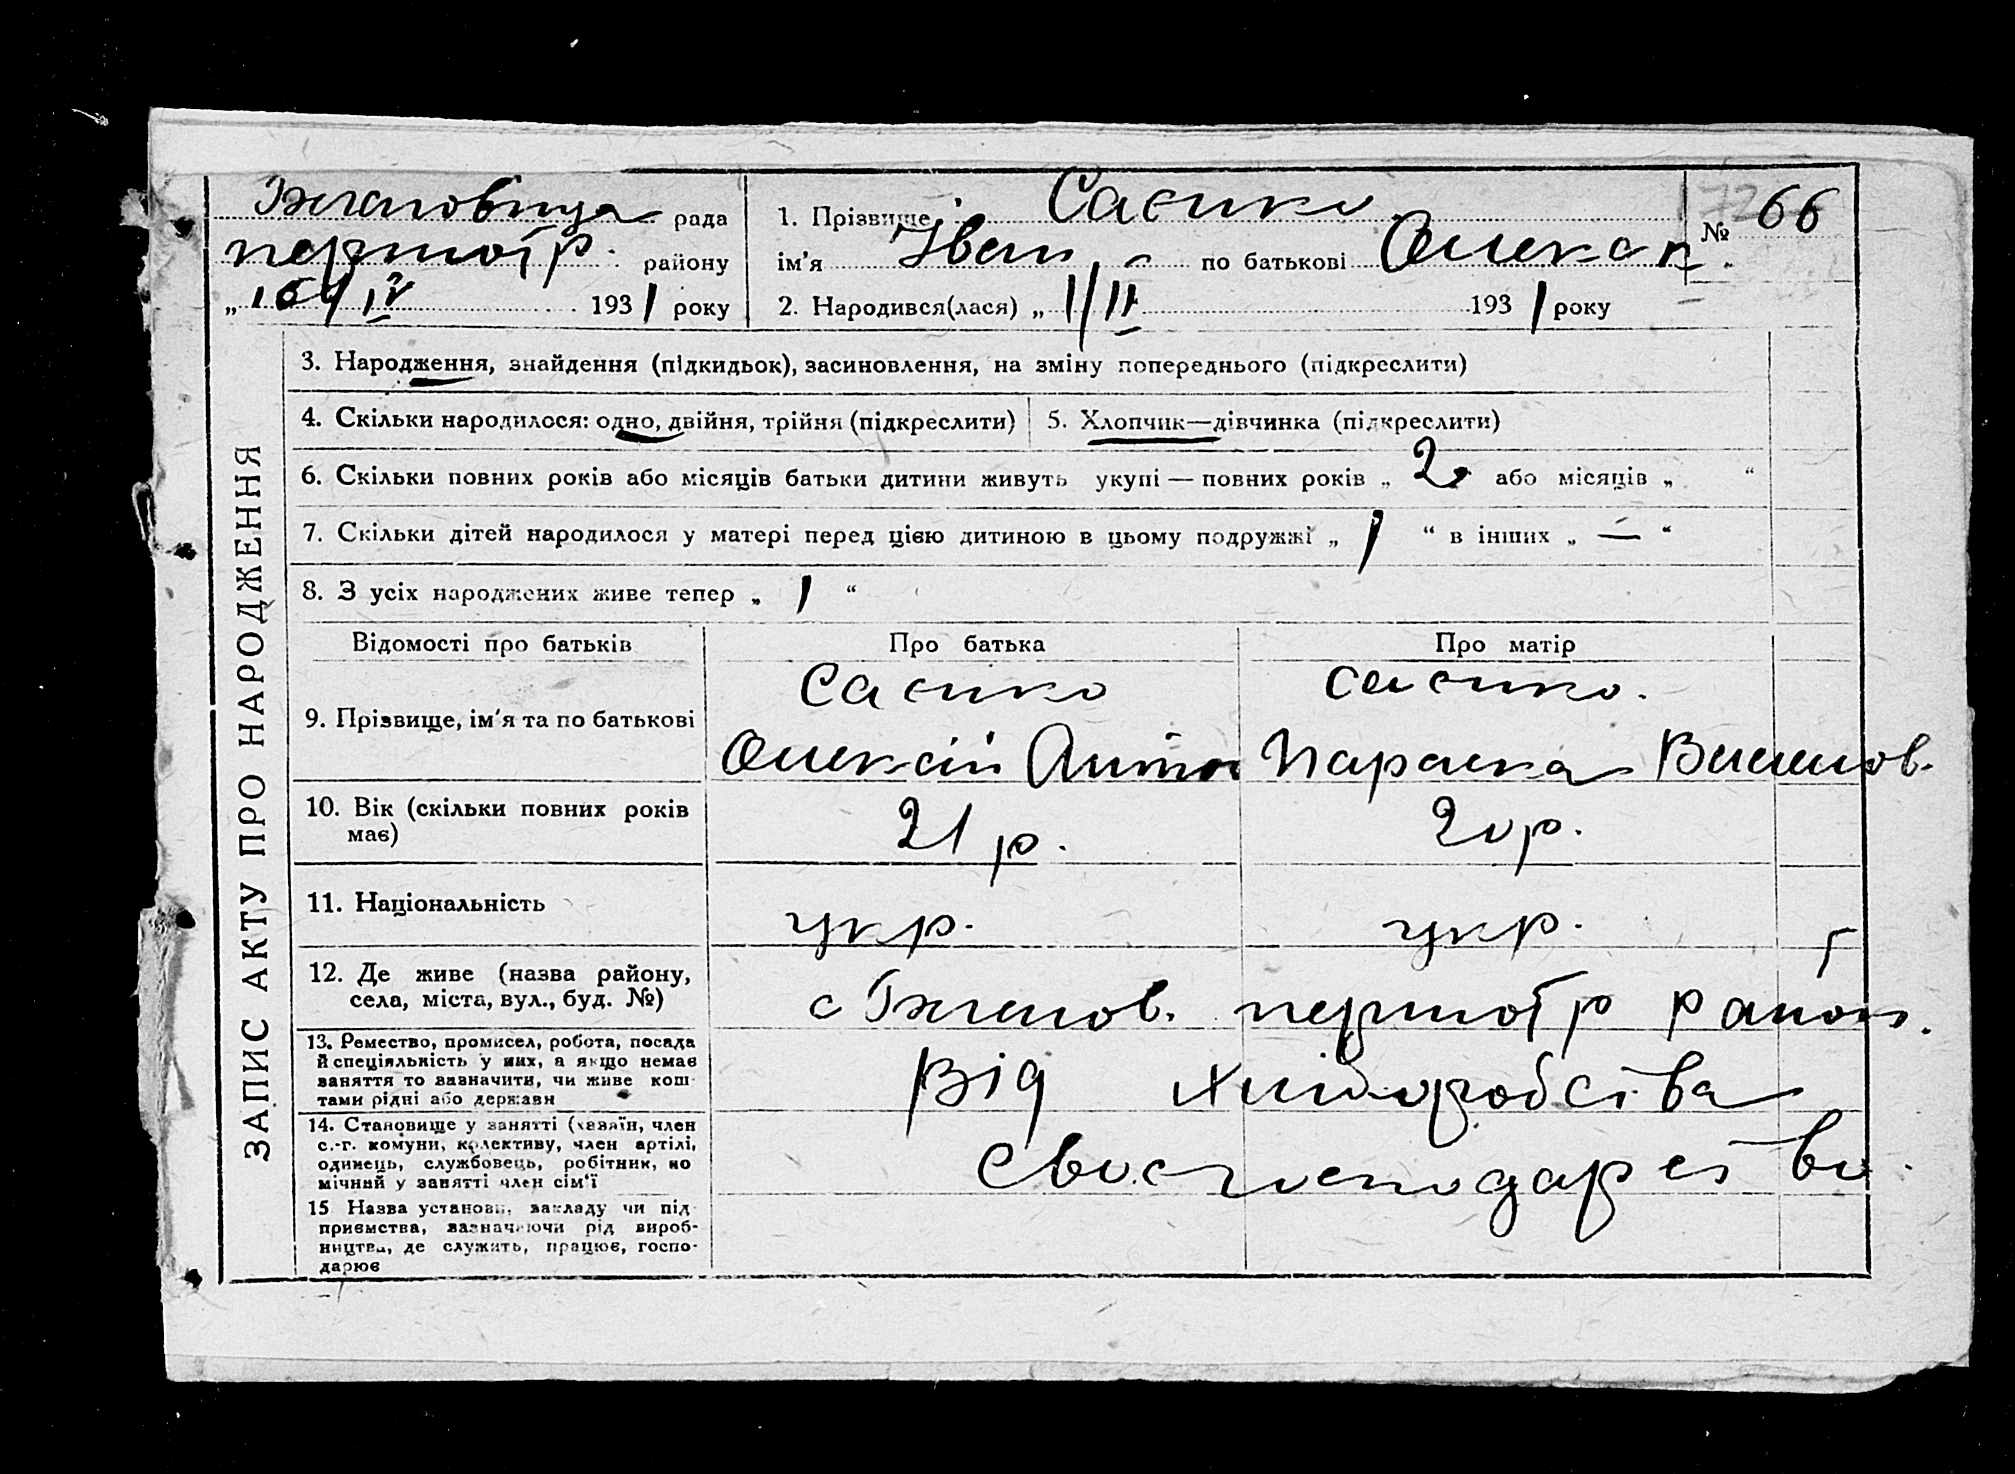 рада
району
193 1 року
1. Прізвище Саєнко
ім'я Іван по батькові Олексп.
№ 66
2. Народився(лася) „ 1/ІІ 193 1 року
ЗАПИС АКТУ ПРО НАРОДЖЕННЯ
3. Народження, знайдення (підкидьок), засиновлення, на зміну попереднього (підкреслити)
4. Скільки народилося: одно, двійня, трійня (підкреслити)
5. Хлопчик—дівчинка (підкреслити)
6. Скільки повних років або місяців батьки дитини живуть укупі — повних років „ 2 або місяців „ “
7. Скільки дітей народилося у матері перед цією дитиною в цьому подружжі „ 1 “ в інших „ — “
8. З усіх народжених живе тепер „ 1 “
Відомості про батьків Про батька Про матір
Саєнко Саєнко.
9. Прізвище, ім'я та по батькові
Олексій Антон Параска
10. Вік (скільки повних років
має)
21 р. 20 р.
11. Національність
укр. укр.
12. Де живе (назва району,
села, міста, вул., буд. №)
с район.
13. Ремество, промисел, робота, посада
й спеціяльність у них, а якщо немає
заняття то зазначити, чи живе кош
тами рідні або держави
Від хліборобства
14. Становище у занятті (хазяїн, член
с.-г. комуни, колективу, член артілі,
одинець, службовець, робітник, по
мічний у занятті член сім'ї
Своє господарство.
15 Назва установи, закладу чи під
приємства, зазначаючи рід вироб-
ництва, де служить, працює, госпо-
дарює